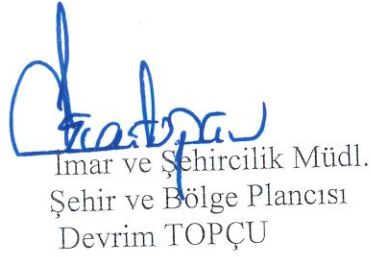 İmar ve Şehircilik Müdl.
Şehir ve Bölge Plancısı
Devrim TOPÇU